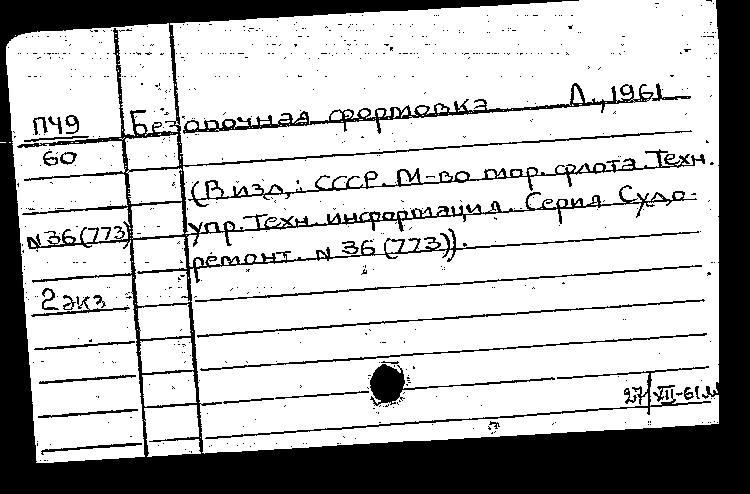 П49 Безопочная формовка. Л., 1961
60
(В изд,: СССР. М-во мор. флота. Техн.
N 36(773) упр. Техн. информация. Серия Судо-
ремонт. N 36 (773)).
2 экз
27/VII-61